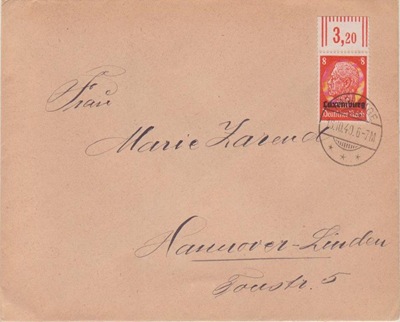 3,20
8 8
Luxemburg
Deutsches Reich
40.6-7N
Frau
Marie Zarendt
Hannover-Linden
Fosstr. 5